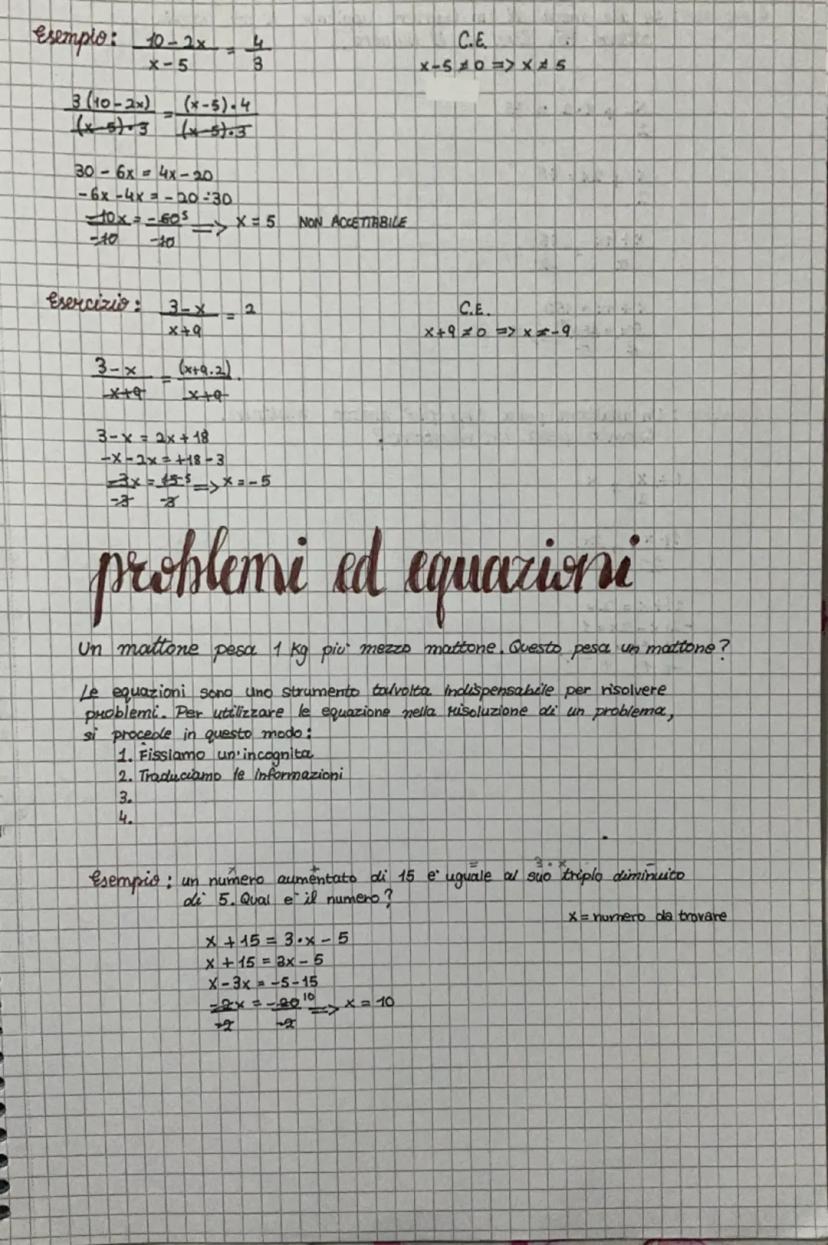 Esempio: 10-2x / x-5 = 4/3 C.E.
x-5≠0 => x≠5
3(10-2x) / (x-5)·3 = (x-5)·4 / (x-5)·3
30-6x = 4x-20
-6x-4x = -20-30
-10x/-10 = -50⁵/-10 => x=5 NON ACCETTABILE
Esercizio: 3-x / x+9 = 2 C.E.
x+9≠0 => x≠-9
3-x / x+9 = (x+9·2) / x+9
3-x = 2x+18
-x-2x = +18-3
-3x/-3 = 15⁻⁵/-3 => x=-5
problemi ed equazioni
Un mattone pesa 1 kg piu' mezzo mattone. Questo pesa un mattone?
Le equazioni sono uno strumento talvolta indispensabile per risolvere
problemi. Per utilizzare le equazione nella risoluzione di un problema,
si procede in questo modo:
1. Fissiamo un'incognita
2. Traduciamo le informazioni
3.
4.
x + = 3·x -
Esempio: un numero aumentato di 15 e' uguale al suo triplo diminuito
di 5. Qual e' il numero?
x = numero da trovare
x+15 = 3·x-5
x+15 = 3x-5
x-3x = -5-15
-2x/-2 = -20¹⁰/-2 => x=10